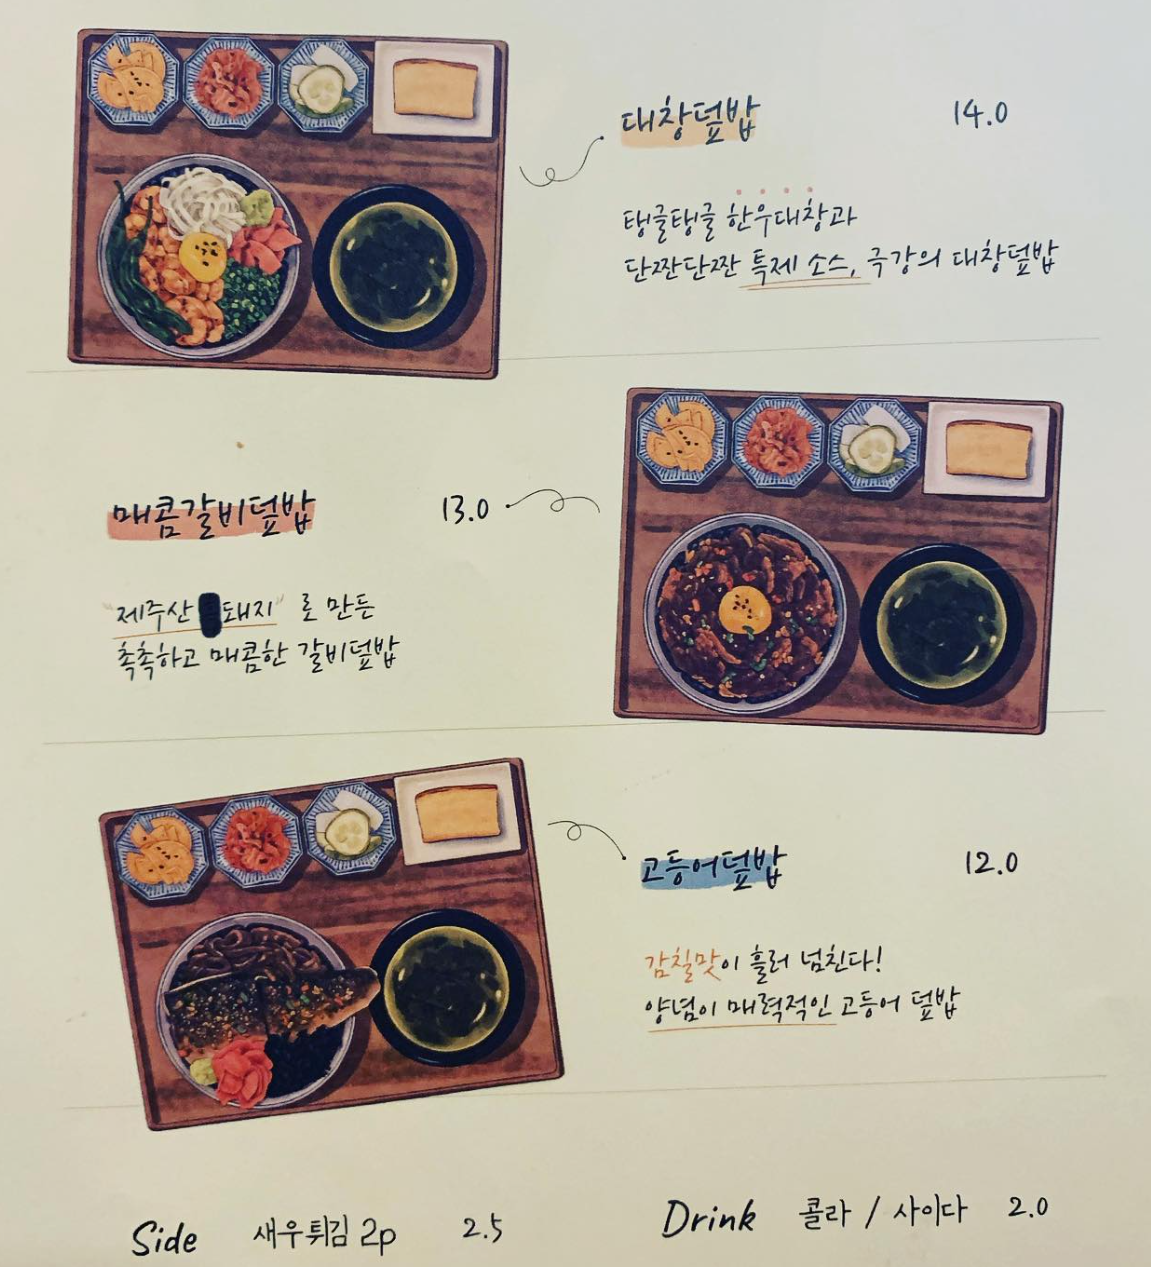 대창덮밥 14.0
탱글탱글 한우대창과
단짠단짠 특제 소스, 극강의 대창덮밥
매콤갈비덮밥 13.0
"제주산 돼지" 로 만든
촉촉하고 매콤한 갈비덮밥
고등어덮밥 12.0
감칠맛이 흘러 넘친다!
양념이 매력적인 고등어 덮밥
Side 새우튀김 2p 2.5
Drink 콜라 / 사이다 2.0